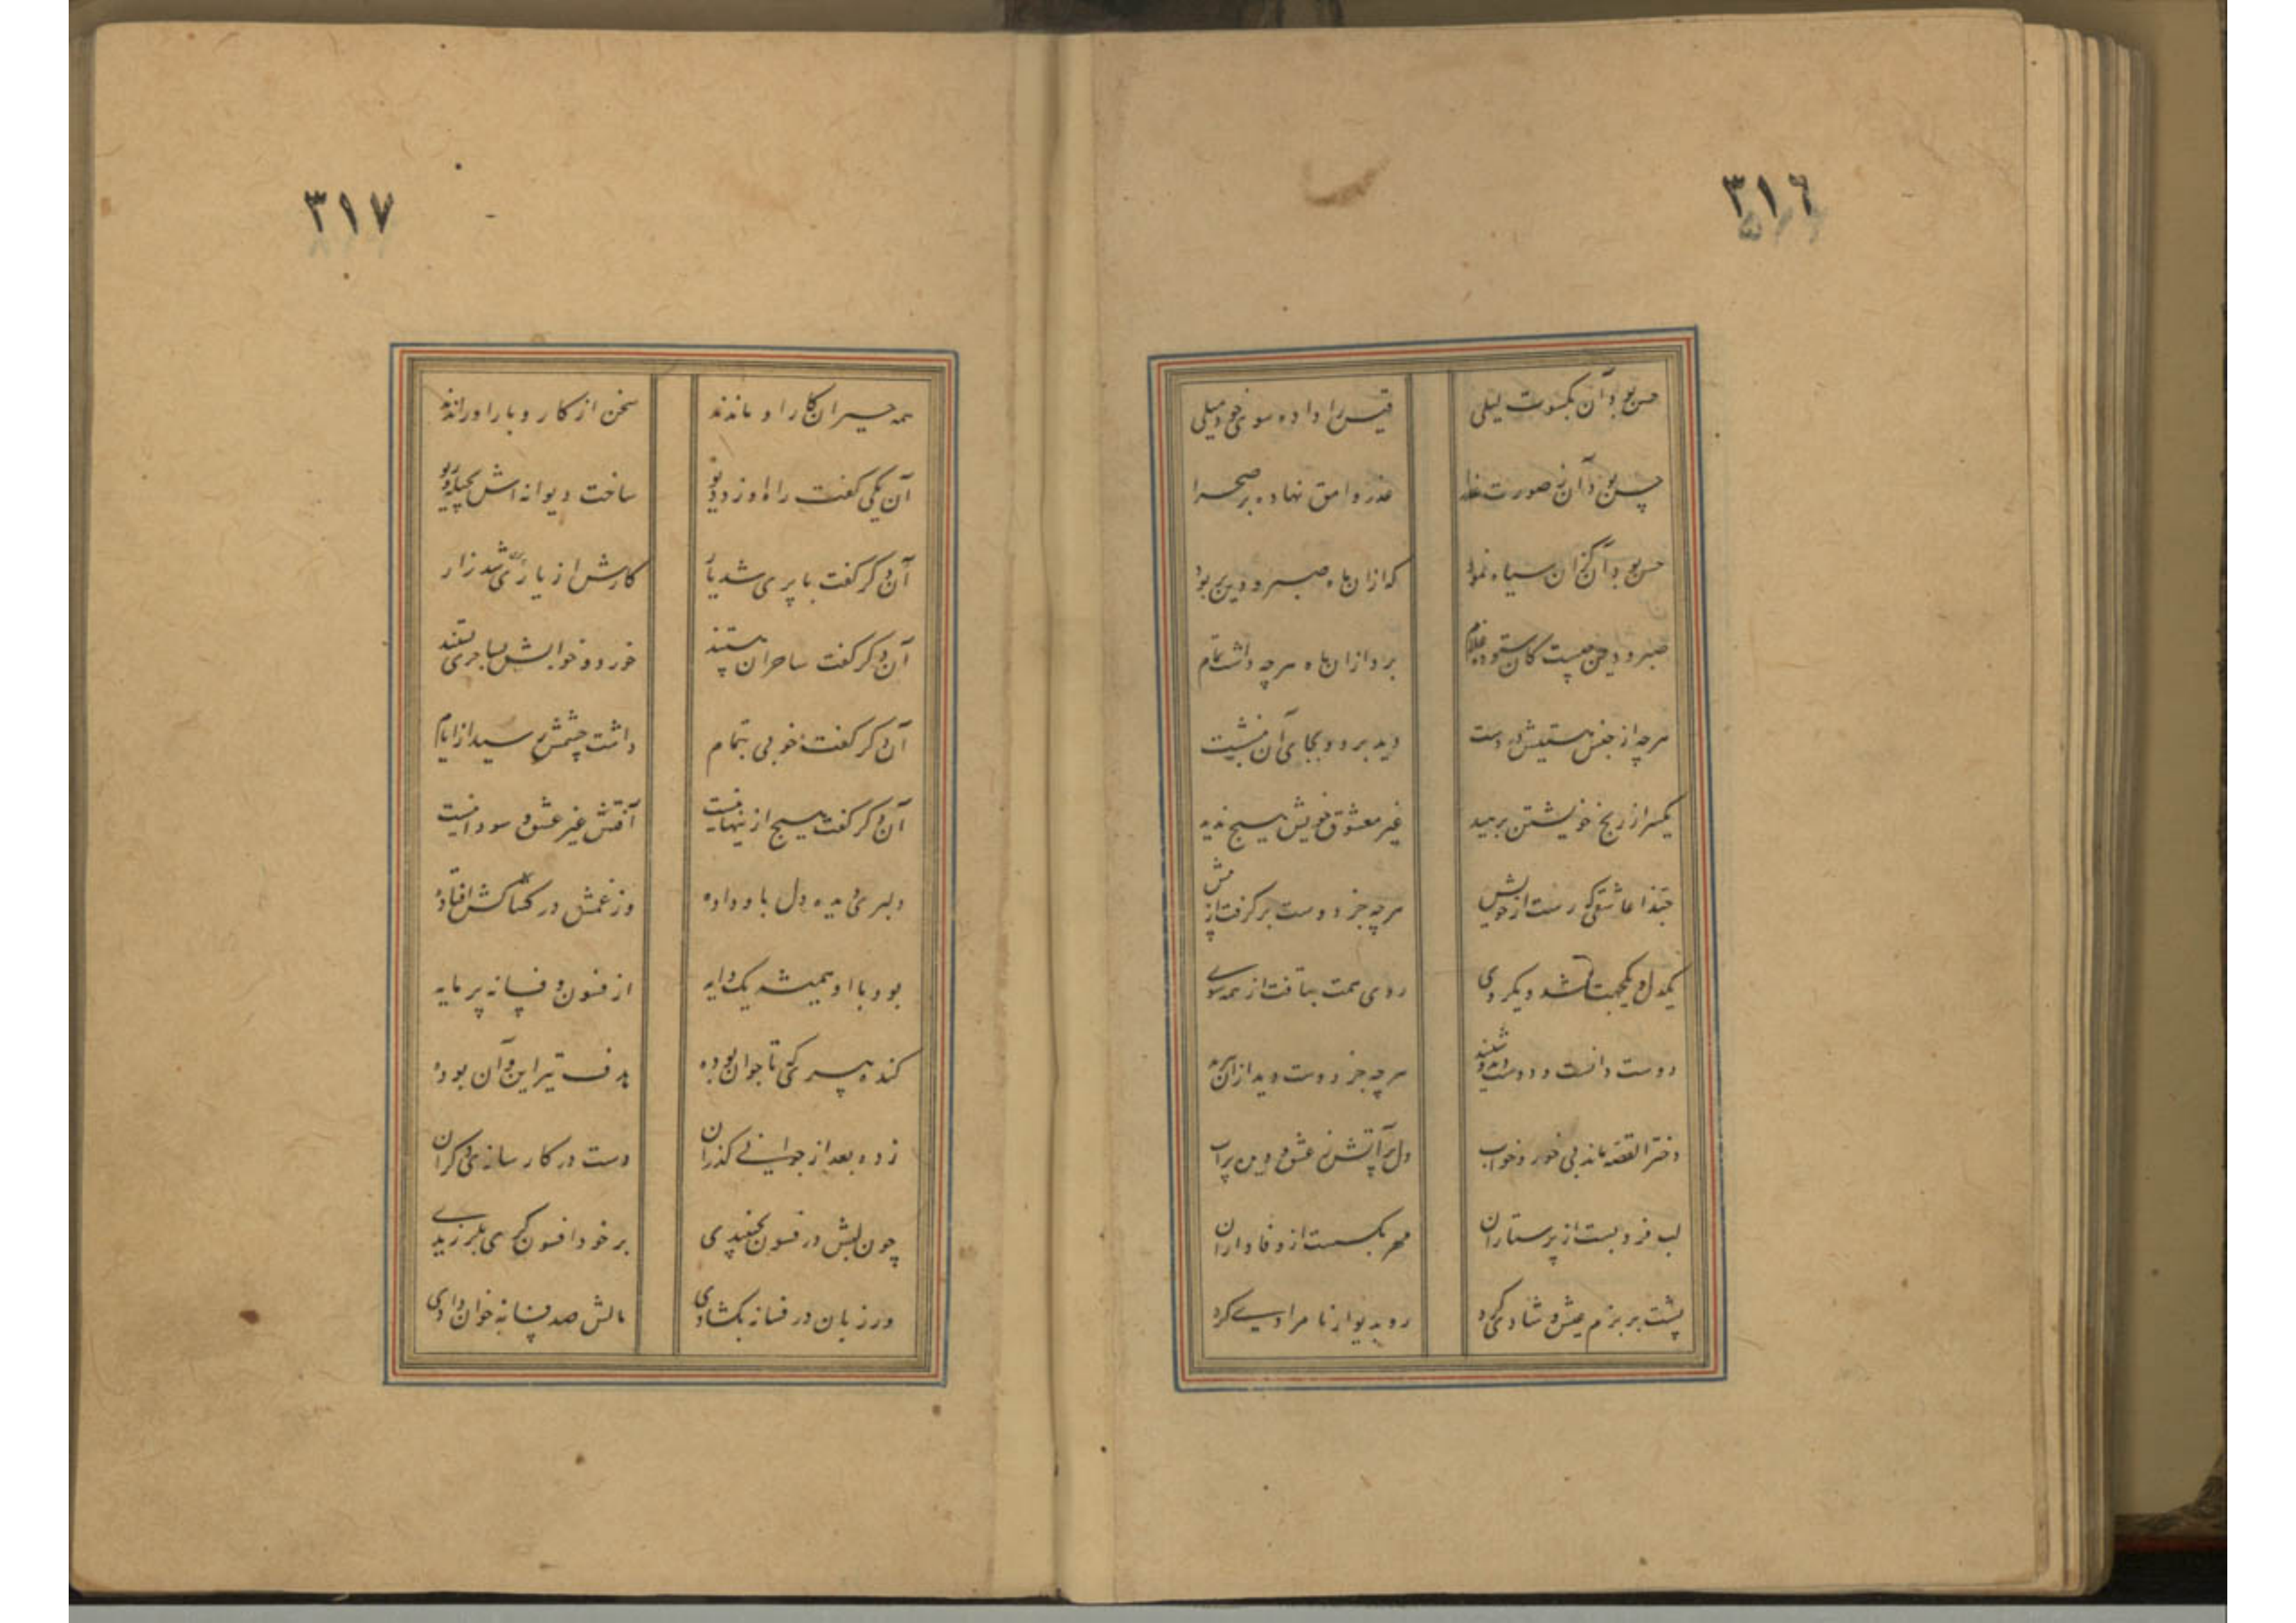 ٣١٦
حسن بود آن بکسوت لیلی قیس را داده سوی خود میلی
حسن بود آن ز صورت عذرا عذر وامق نهاده بر صحرا
حسن بود آن کزان سیاه نمود که ازان ماه صبر و دین بربود
صبر و دین چیست کان ستوده غلام برد ازان ماه هرچه داشت تمام
هرچه از جنس هستیش در دست دید برد و بجای آن بنشست
یکسر از رنج خویشتن برهید غیر معشوق خویش هیچ ندید
حبذا عاشقی که رست از خویش هرچه جز دوست برگرفت از پیش
یکدل و یکجهت شد و یکروی روی همت بتافت از همه سوی
دوست دانست و دوست دید و شنید هرچه جز دوست دید ازان
دختر القصه ماند بی خور و خواب دل پر آتش ز عشق و دیده پرآب
لب فرو بست از پرستاران مهر بگسست از وفاداران
پشت بر بزم عیش و شادی کرد رو بدیوار نامرادی کرد
٣١٧
همه حیران کار او ماندند سخن از کار و بار او راندند
آن یکی گفت راه او زد دیو ساخت دیوانه اش بحیله و ریو
آن دگر گفت با پری شد یار کارش از یاری پری شد زار
آن دگر گفت ساحران بستند خورد و خوابش بساحری بستند
آن دگر گفت خوبی بتمام داشت چشمش رسید از ایام
آن دگر گفت هیچ ازینها نیست آفتش غیر عشق و سودا نیست
دلبری دیده دل باو داده وز غمش در کشاکش افتاده
بود با او همیشه یک دایه از فسون و فسانه پرمایه
کنده پیری که تا جوان بوده هدف تیر این و آن بوده
زده بعد از جوانی گذران دست در کارسازی دگران
چون لبش در فسون بجنبیدی بر خود افسونگری بلرزیدی
ور زبان در فسانه بگشادی مالش صد فسانه خوان دادی